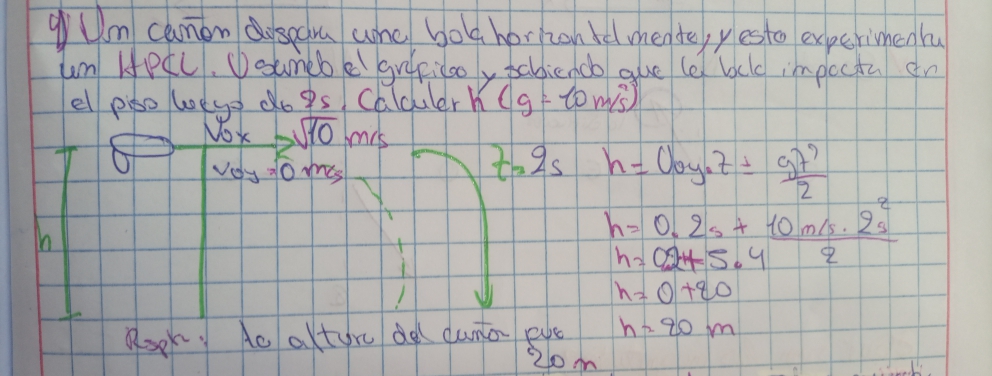 9) Un cañón dispara una bola horizontalmente, y esto experimenta
un MPCL. Usando el gráfico y sabiendo que la bola impacta en
el piso luego de 2s. Calcular h (g = 10 m/s²)
Vox √10 m/s
Voy = 0 m/s
h
t = 2s
h = Voy.t ± gt²/2
h = 0.2s + 10 m/s. 2s²/2
h = 02 + 5.4
h = 0 + 20
h = 20 m
Rspta: la altura del cañón fue
20 m